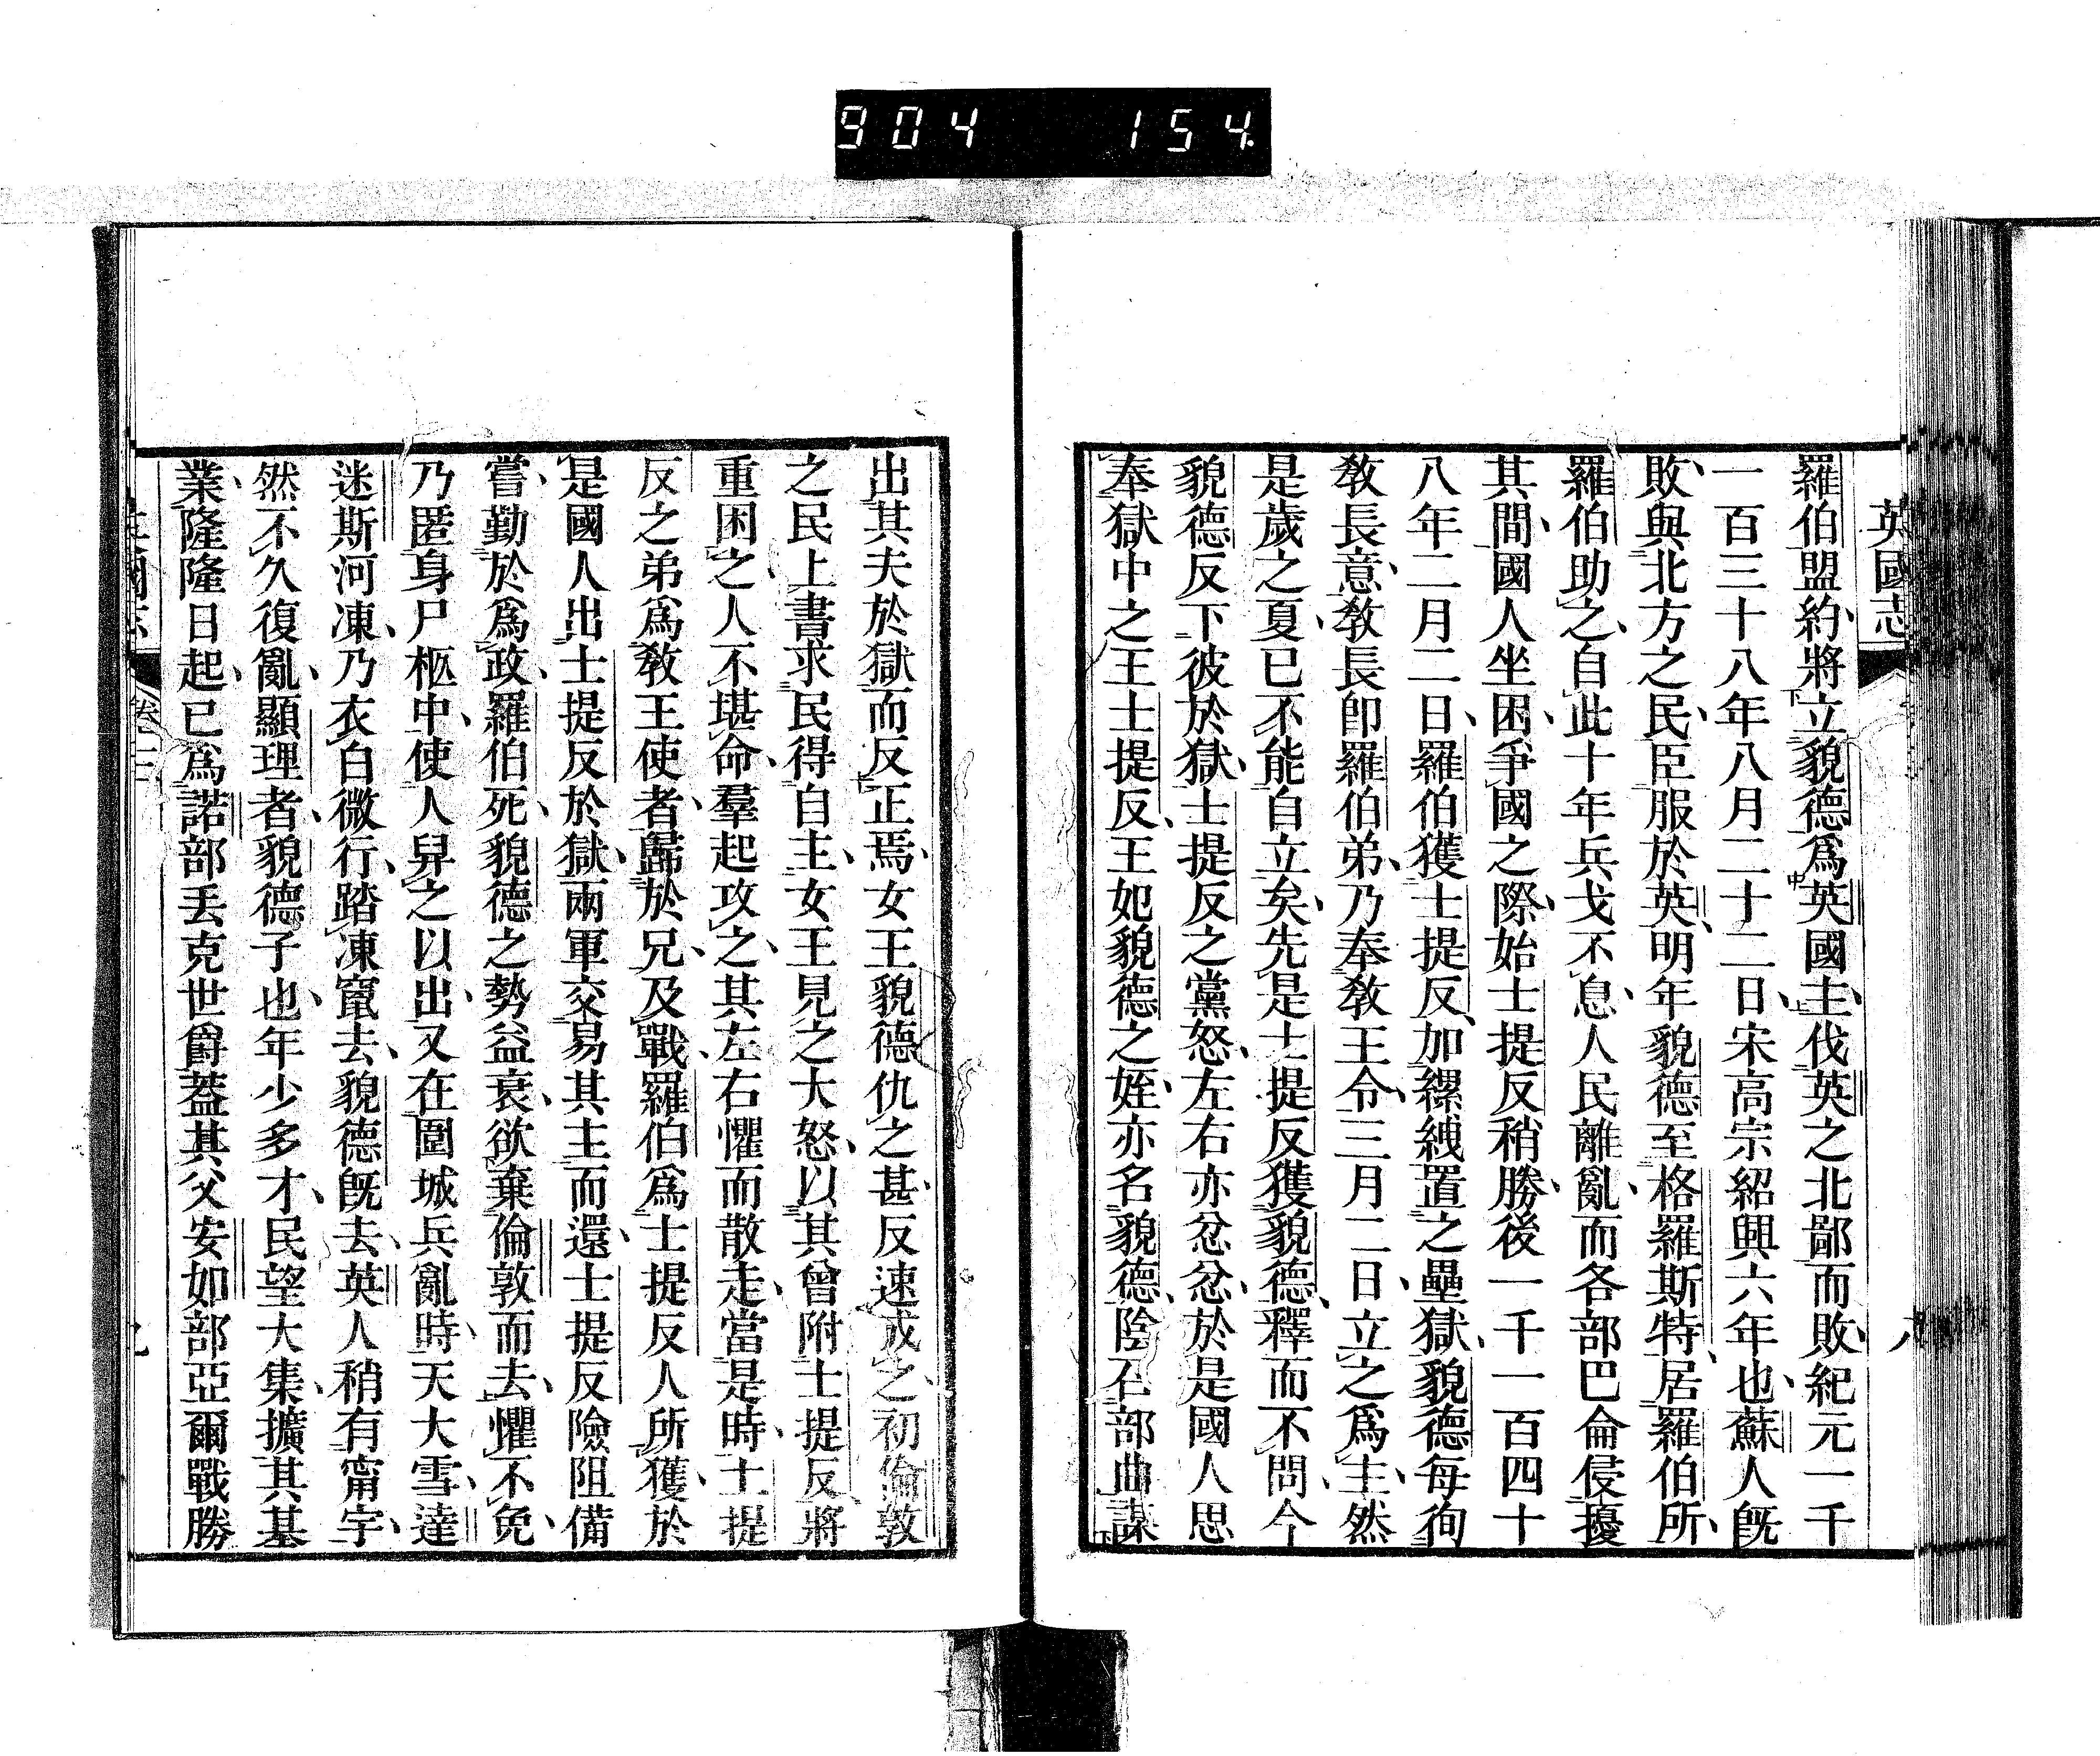 904 154
英國志
八
羅伯盟約將立貌德爲英國主伐英之北鄙而敗紀元一千
一百三十八年八月二十二日宋高宗紹興六年也蘇人旣
敗與北方之民臣服於英明年貌德至格羅斯特居羅伯所
羅伯助之自此十年兵戈不息人民離亂而各部巴侖侵擾
其間國人坐困爭國之際始士提反稍勝後一千一百四十
八年二月二日羅伯獲士提反加縲絏置之壘獄貌德每徇
敎長意敎長卽羅伯弟乃奉敎王令三月二日立之爲主然
是歲之夏已不能自立矣先是士提反獲貌德釋而不問今
貌德反下彼於獄士提反之黨怒左右亦忿忿於是國人思
奉獄中之王士提反王妃貌德之姪亦名貌德陰召部曲謀
出其夫於獄而反正焉女王貌德仇之甚反速成之初倫敦
之民上書求民得自主女王見之大怒以其曾附士提反將
重困之人不堪命羣起攻之其左右懼而散走當是時士提
反之弟爲敎王使者歸於兄及戰羅伯爲士提反人所獲於
是國人出士提反於獄兩軍交易其主而還士提反險阻備
嘗勤於爲政羅伯死貌德之勢益衰欲棄倫敦而去懼不免
乃匿身尸柩中使人舁之以出又在圍城兵亂時天大雪達
迷斯河凍乃衣白微行踏凍竄去貌德旣去英人稍有甯宇
然不久復亂顯理者貌德子也年少多才民望大集擴其基
業隆隆日起已爲諾部丢克世爵蓋其父安如部亞爾戰勝